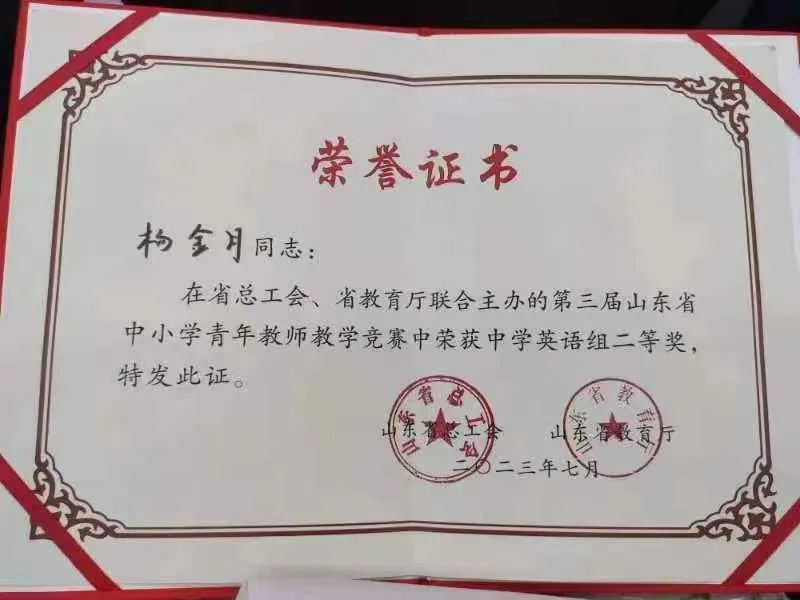 荣誉证书
杨金月同志：
在省总工会、省教育厅联合主办的第三届山东省
中小学青年教师教学竞赛中荣获中学英语组二等奖，
特发此证。
山东省总工会 山东省教育厅
山东省总工会 山东省教育厅
二〇二三年七月